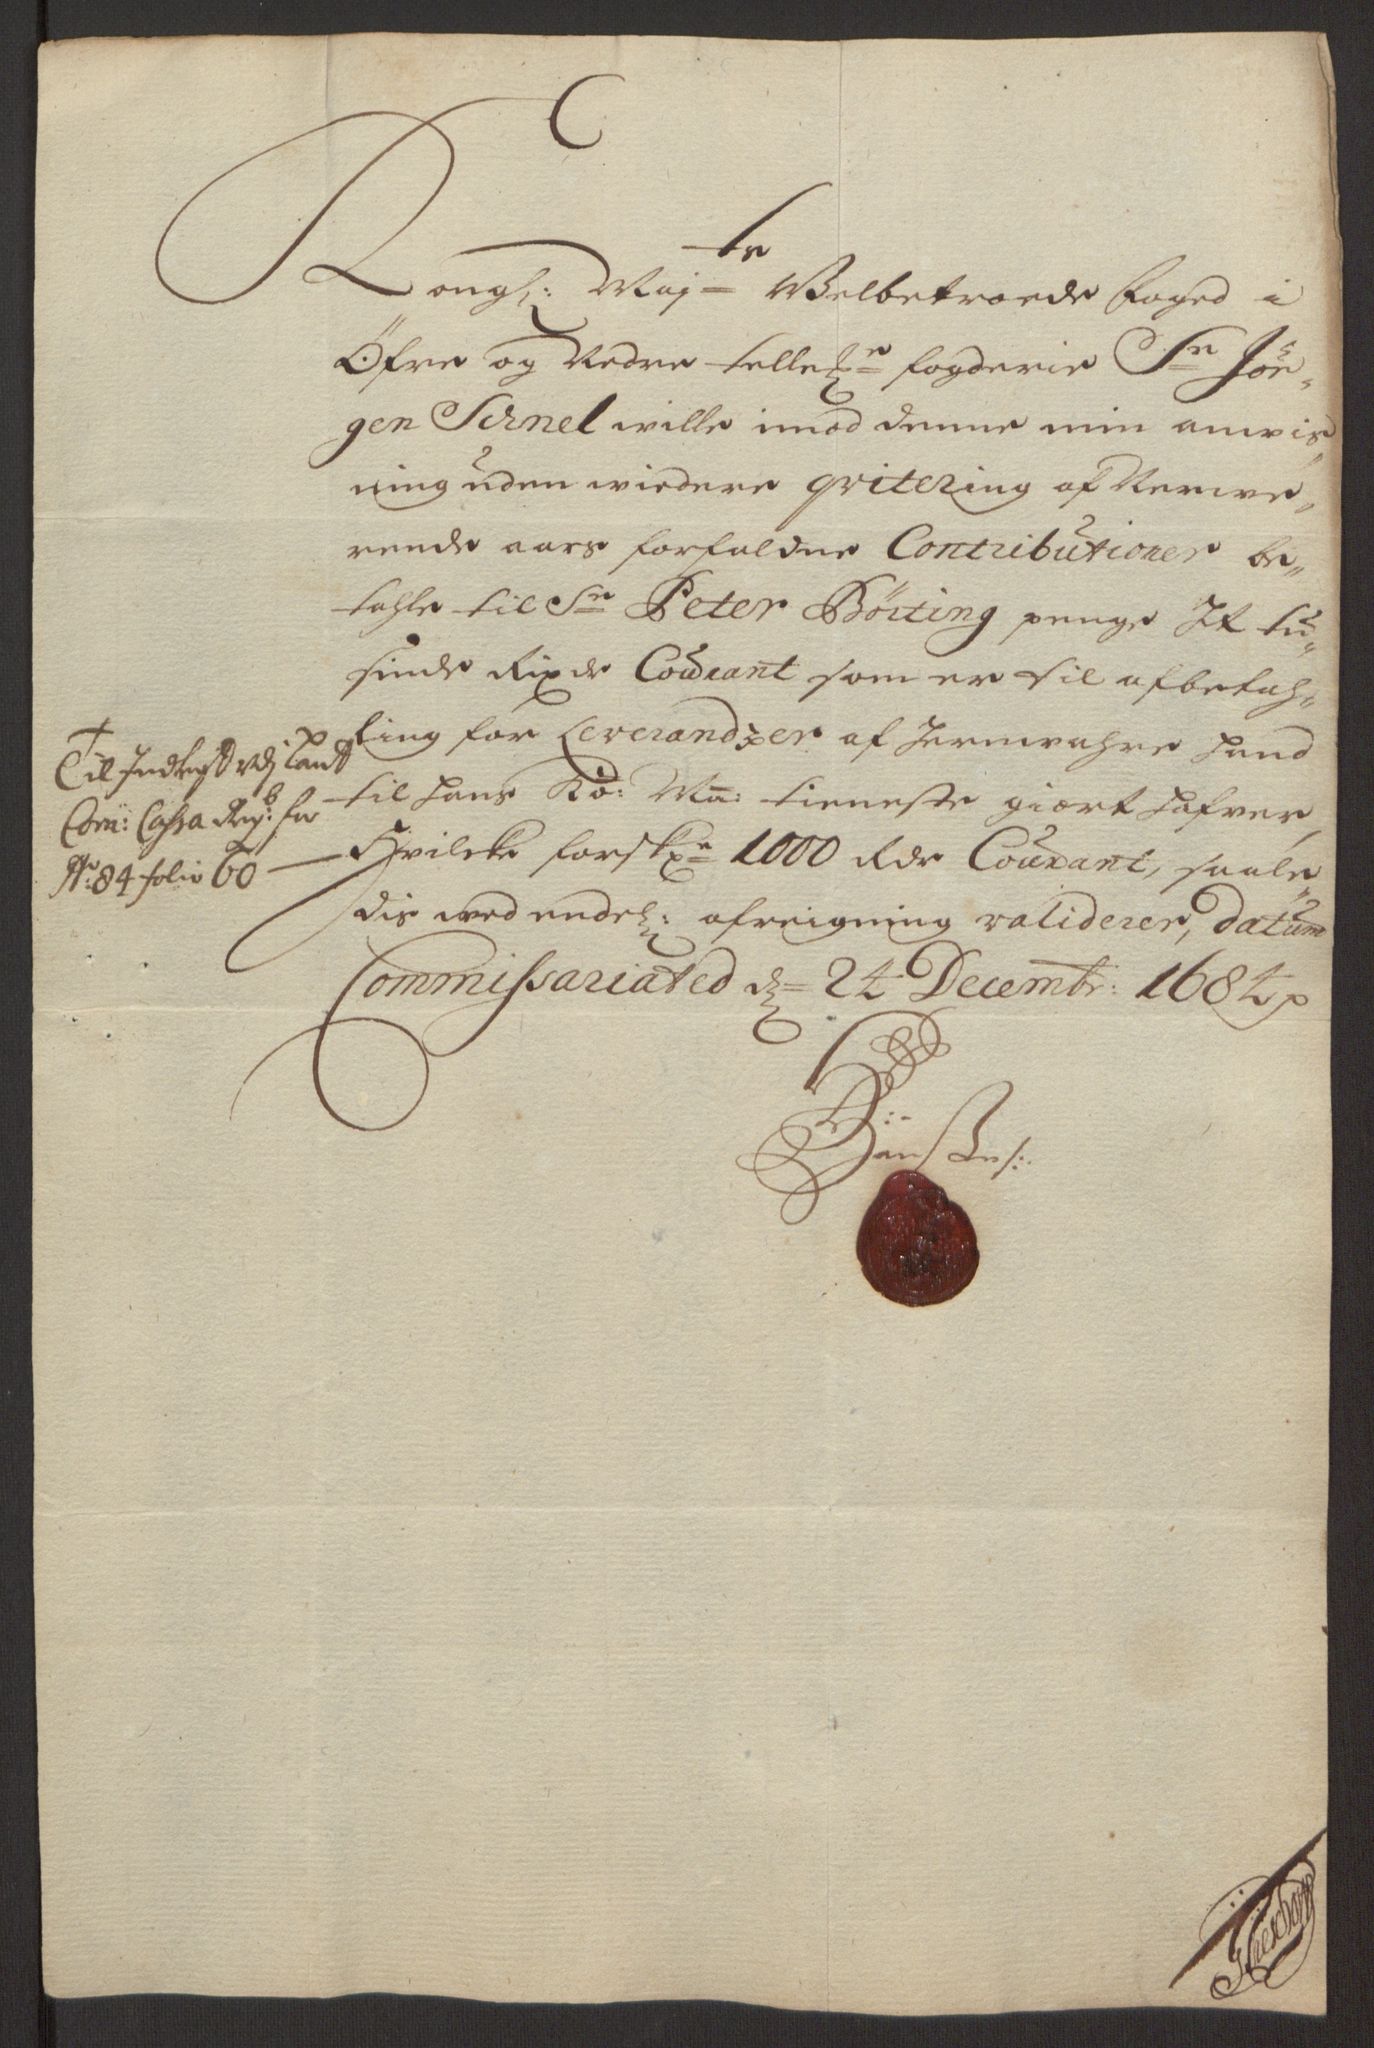 Kongl: Maj=ts Welbetroede foged i
Öfre og Nedre tellem=n fogderie Sr Jör„
gen Schnel wille imod denne min anwis„
ning uden widere qvitering af Nerwe„
rende aars forfaldne Contributioner be„
tahle til Sr Peter Börting penge Et tu„
sinde Rixdr Courant som er til afbetah„
ling for Leverandzer af Jernwahre hand
til hans Ko: Ma: tieneste giort hafver,
Hvilcke forskr=ne 1000 Rdr Courant, saale„
dis wed endel: afreigning validerer, Datum
Commissariated d= 24 Decembr: 1684
Til Indtegt udj Land
Com: Cassa Reg: for
Ao: 84 folio 60